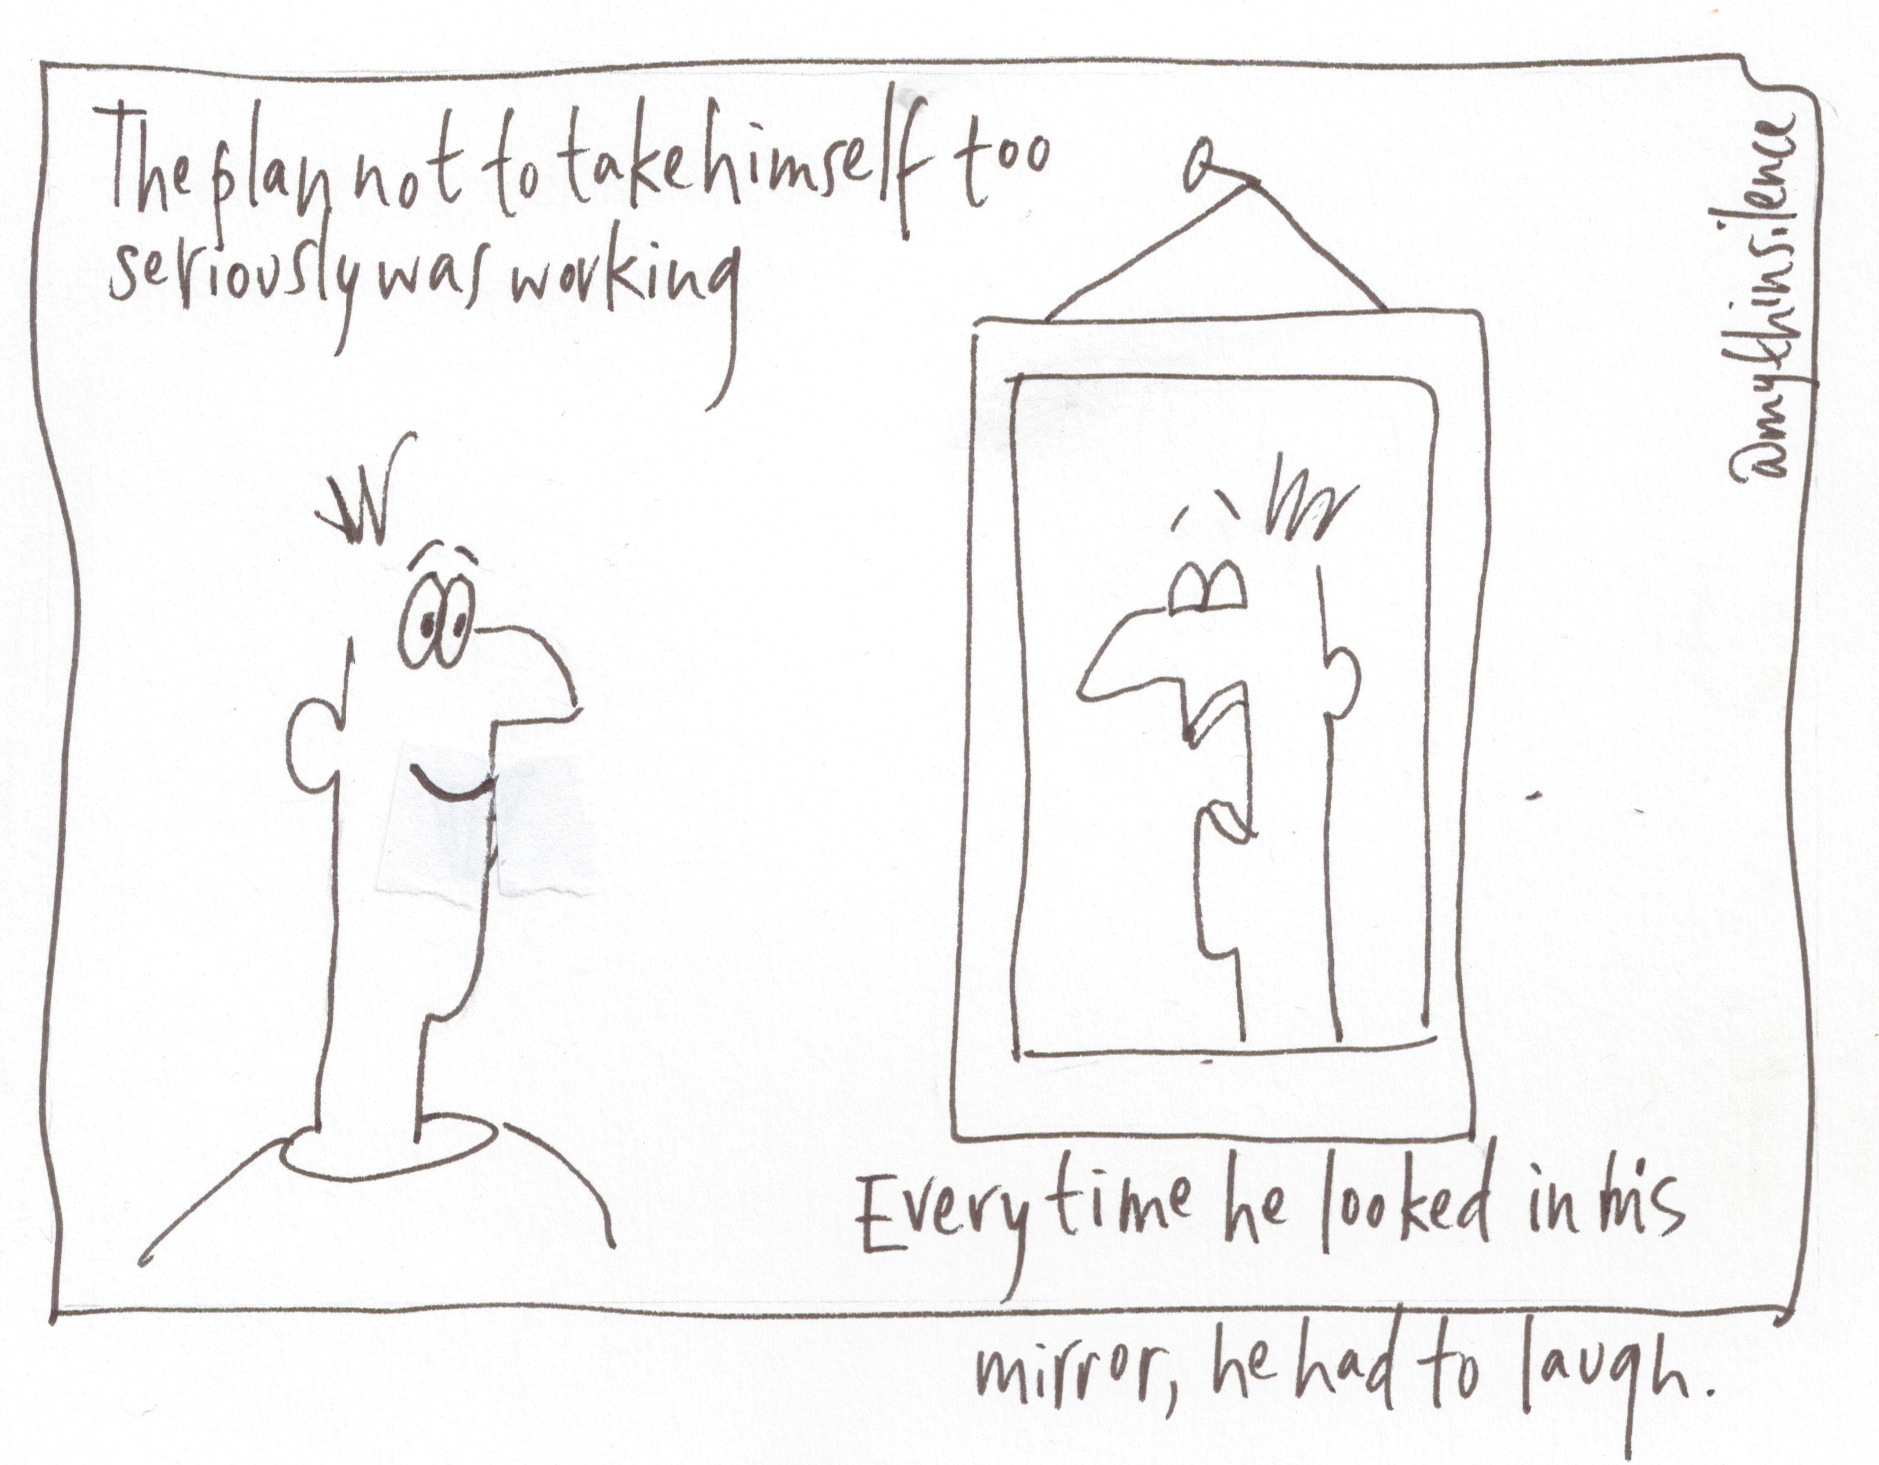 The plan not to take himself too
seriously was working
@mykhinsilence
Every time he looked in his
mirror, he had to laugh.